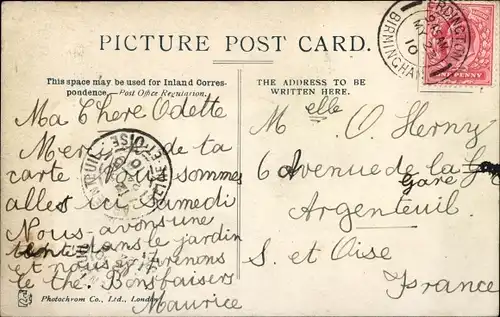 PICTURE POST CARD.
This space may be used for Inland Corres-
pondence.—(Post Office Regulation.)
THE ADDRESS TO BE
WRITTEN HERE.
ERDINGTON
BIRMINGHAM
10
ONE PENNY
Ma Chere Odette
Merci de ta
carte Nous sommes
alles ici samedi
Nous avons une
tente dans le jardin
et nous y prenons
le thé. Bons baisers
Maurice
Melle O. Herny
6 Avenue de la
Gare
Argenteuil
S. et Oise
France
SEINE-ET-OISE
Photochrom Co., Ltd., London